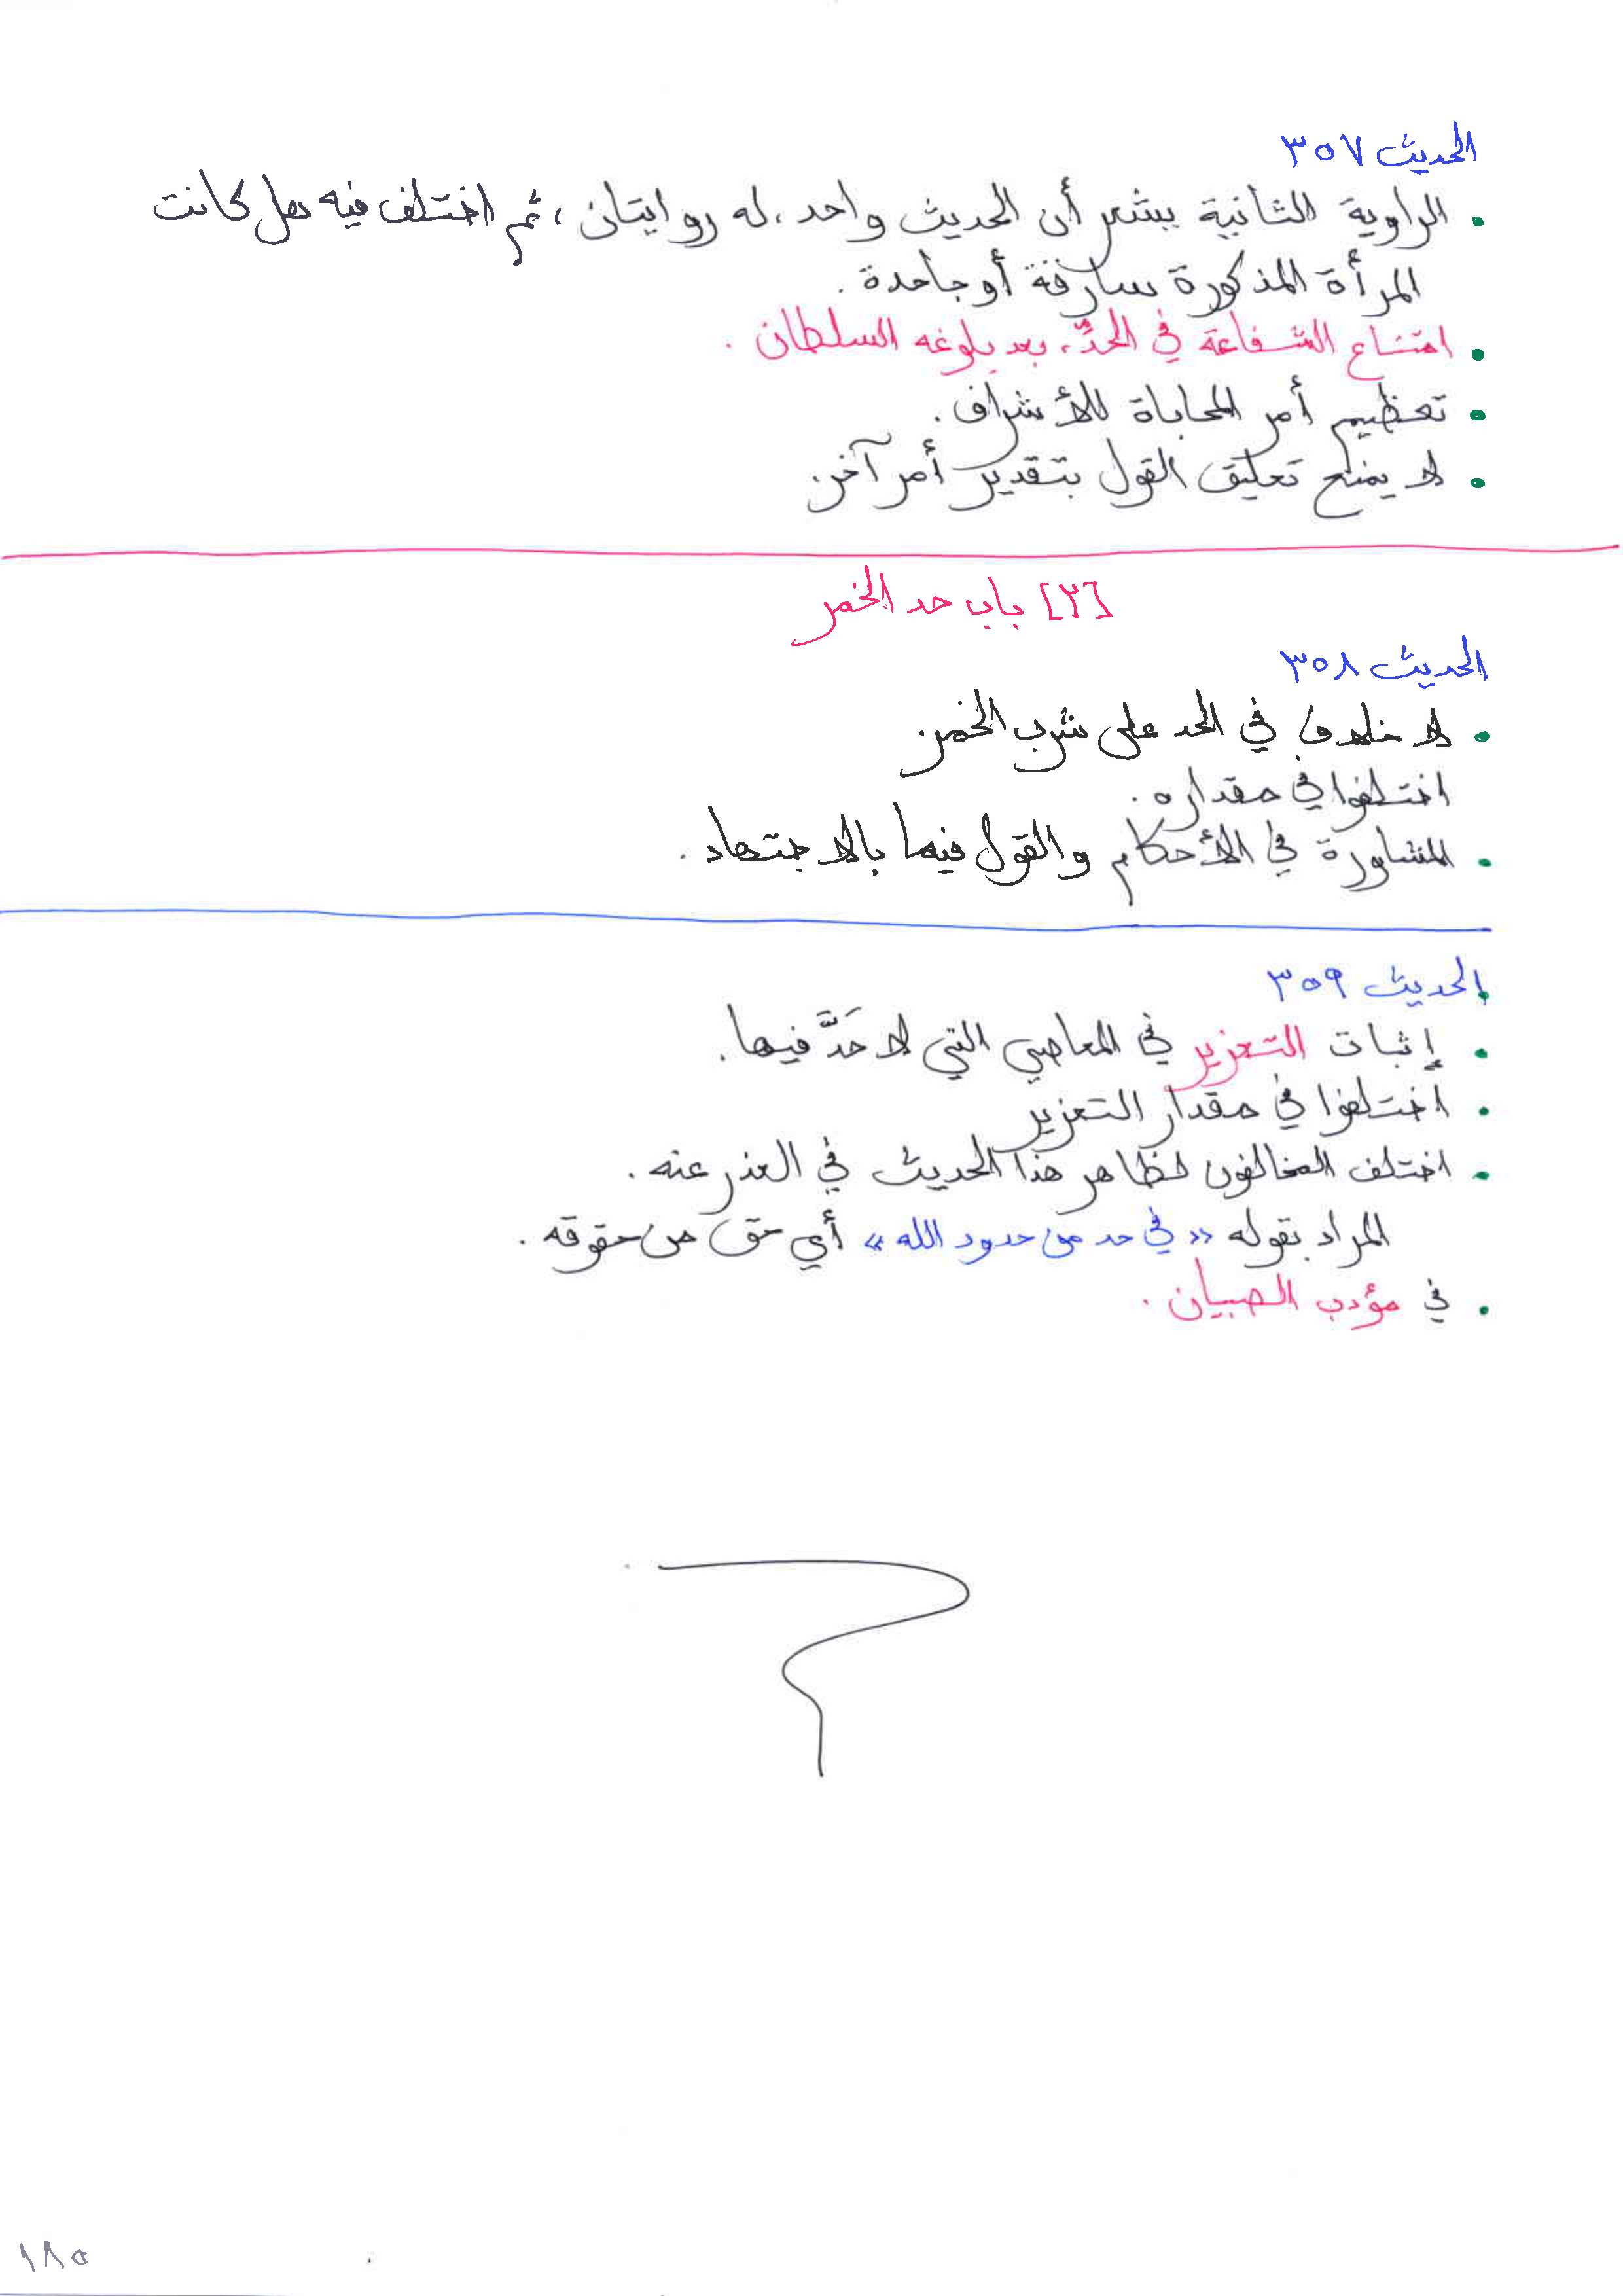 الحديث ٣٥٧
• الراوية الثانية يشعر أن الحديث واحد، له روايتان، ثم اختلف فيه هل كانت
المرأة المذكورة سارقة أو جاحدة.
• امتناع الشفاعة في الحدِّ، بعد بلوغه السلطان.
• تعظيم أمر المحاباة للأشراف.
• لا يمنع تعليق القول بتقدير أمر آخر.
[٢] باب حد الخمر
الحديث ٣٥٨
• لا خلاف في الحد على شرب الخمر.
اختلفوا في مقداره.
• المشاورة في الأحكام والقول فيها بالاجتهاد.
الحديث ٣٥٩
• إثبات التعزير في المعاصي التي لا حَدَّ فيها.
• اختلفوا في مقدار التعزير
• اختلف المخالفون لظاهر هذا الحديث في العذر عنه.
المراد بقوله «في حد من حدود الله» أي حق من حقوقه.
• في مؤدب الصبيان.
١٨٥